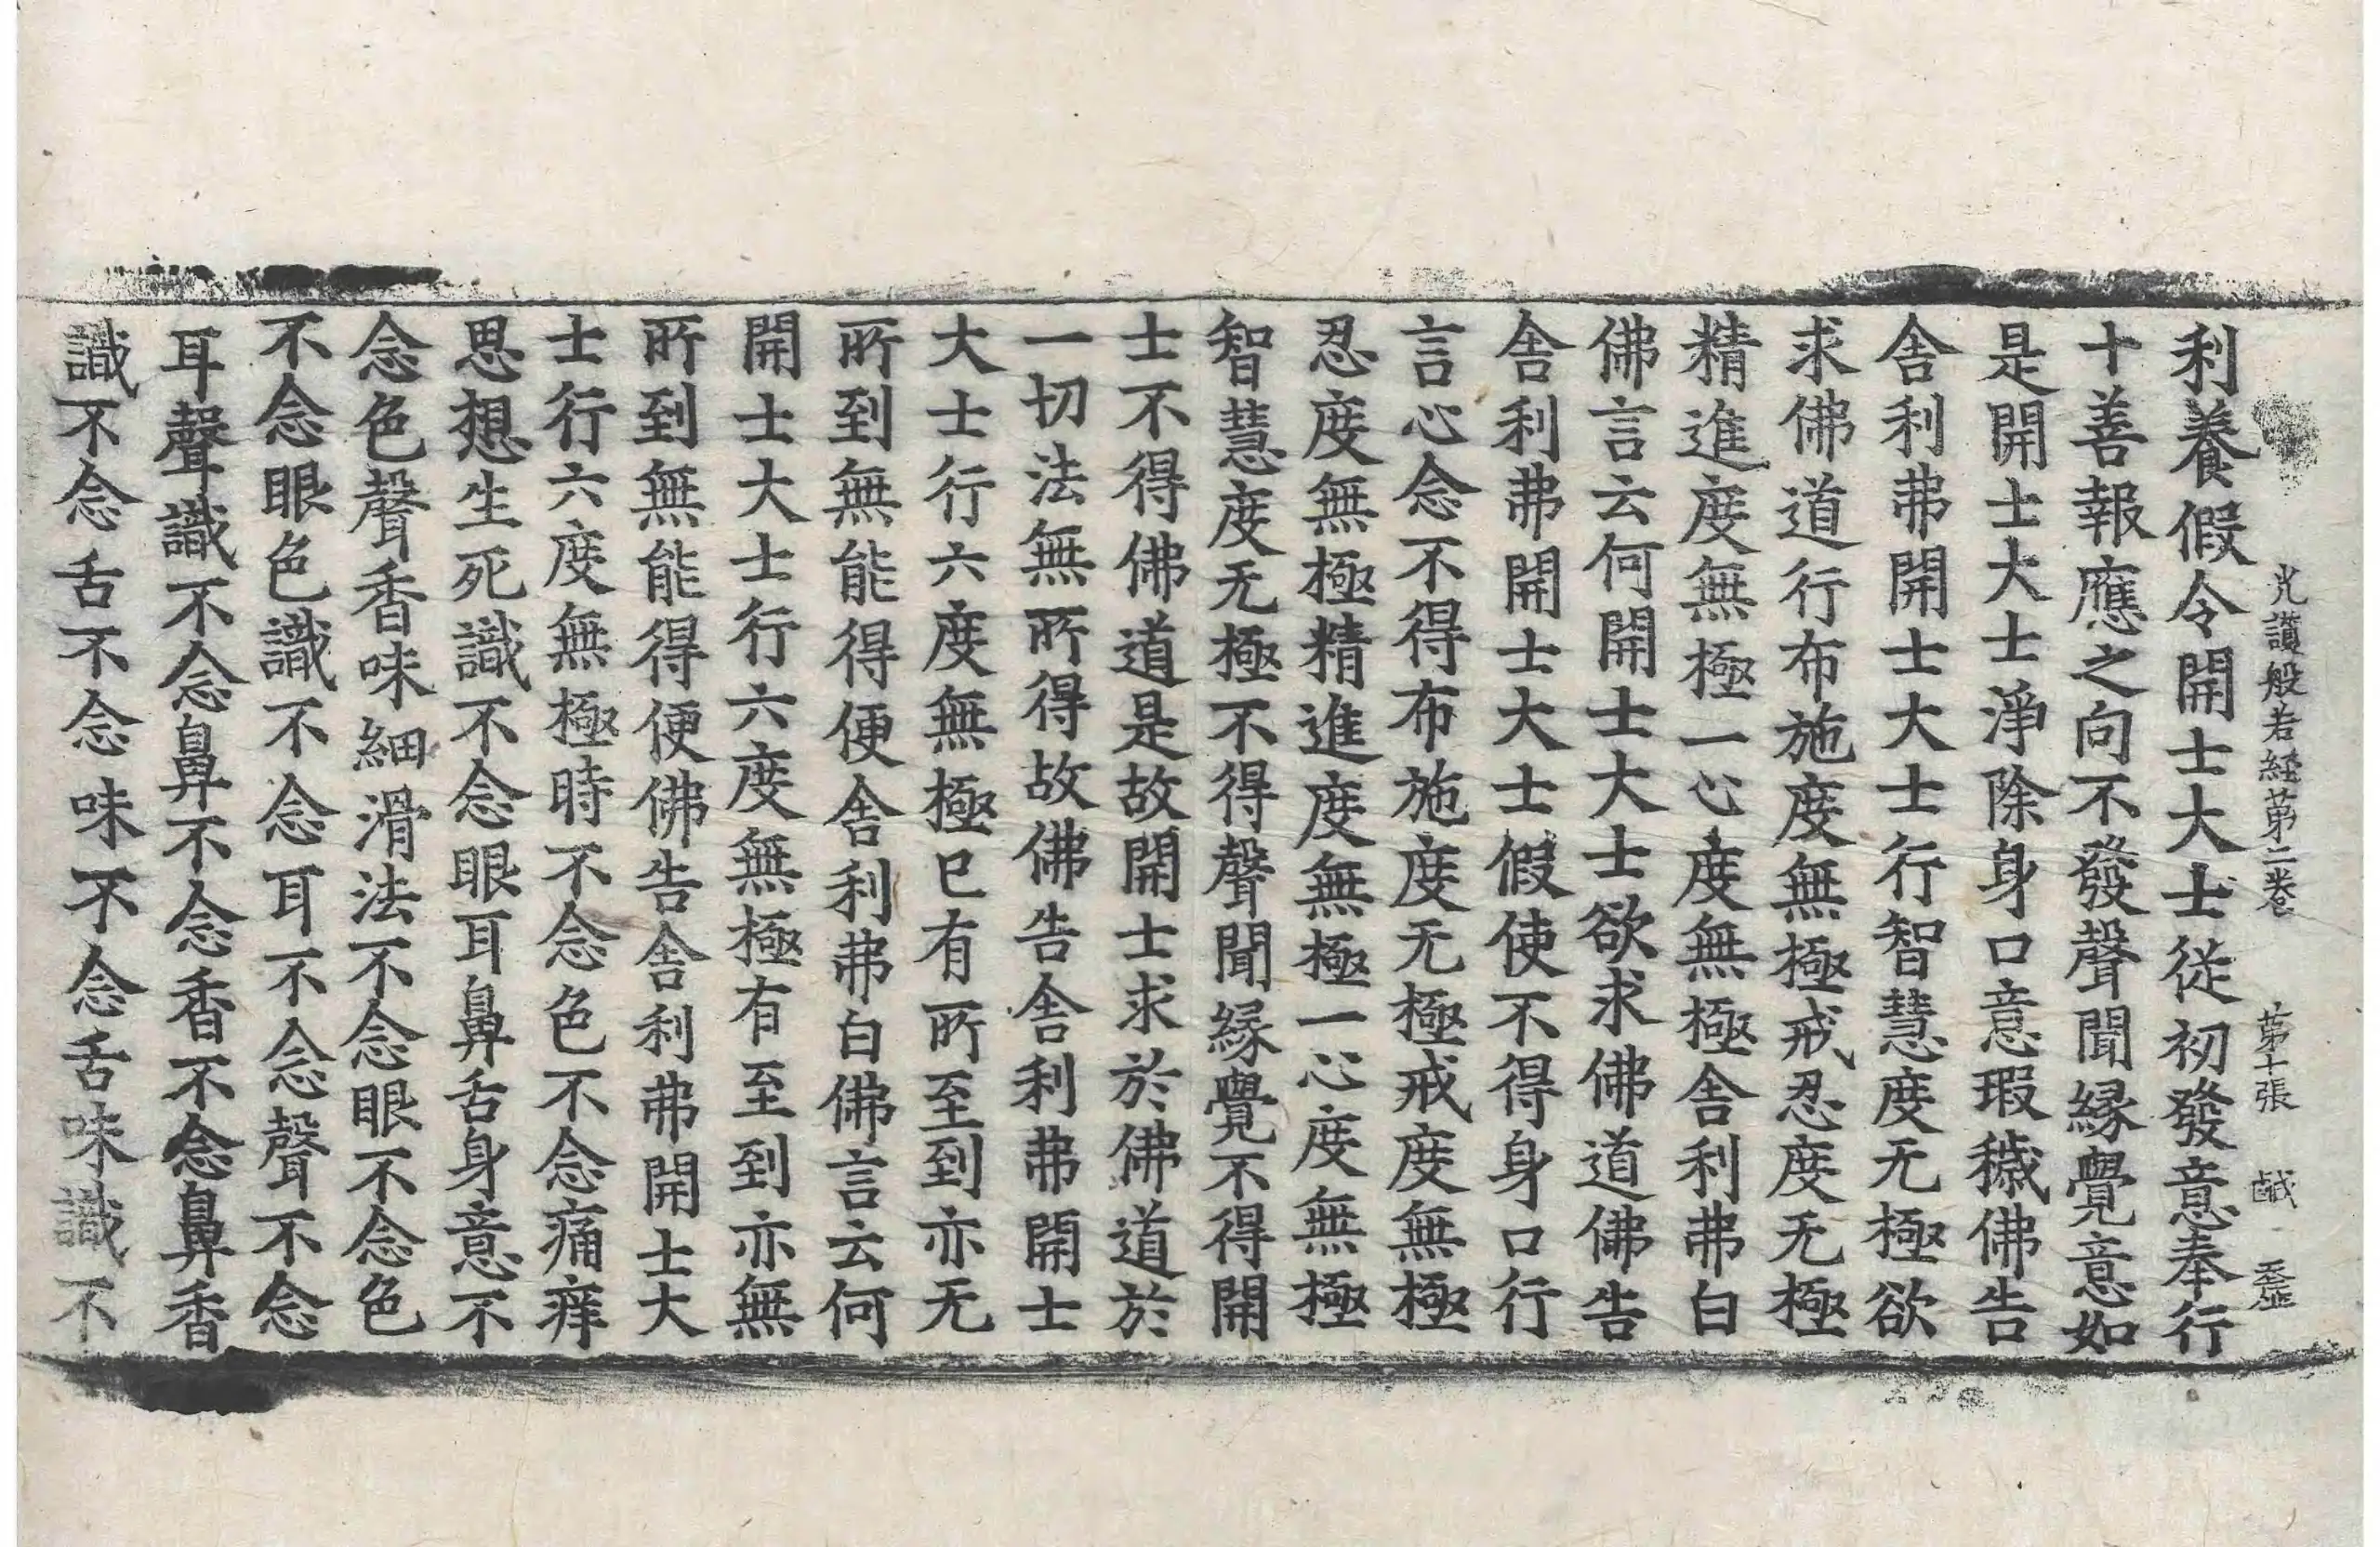 光讃般若経苐二卷 苐十張 鹹
利養假令開士大士從初發意奉行
十善報應之向不發聲聞縁覺意如
是開士大士淨除身口意瑕穢佛告
舎利弗開士大士行智慧度无極欲
求佛道行布施度無極戒忍度无極
精進度無極一心度無極舎利弗白
佛言云何開士大士欲求佛道佛告
舎利弗開士大士假使不得身口行
言心念不得布施度无極戒度無極
忍度無極精進度無極一心度無極
智慧度无極不得聲聞縁覺不得開
士不得佛道是故開士求於佛道於
一切法無所得故佛告舎利弗開士
大士行六度無極巳有所至到亦无
所到無能得便舎利弗白佛言云何
開士大士行六度無極有至到亦無
所到無能得便佛告舎利弗開士大
士行六度無極時不念色不念痛痒
思想生死識不念眼耳鼻舌身意不
念色聲香味細滑法不念眼不念色
不念眼色識不念耳不念聲不念
耳聲識不念鼻不念香不念鼻香
識不念舌不念味不念舌味識不